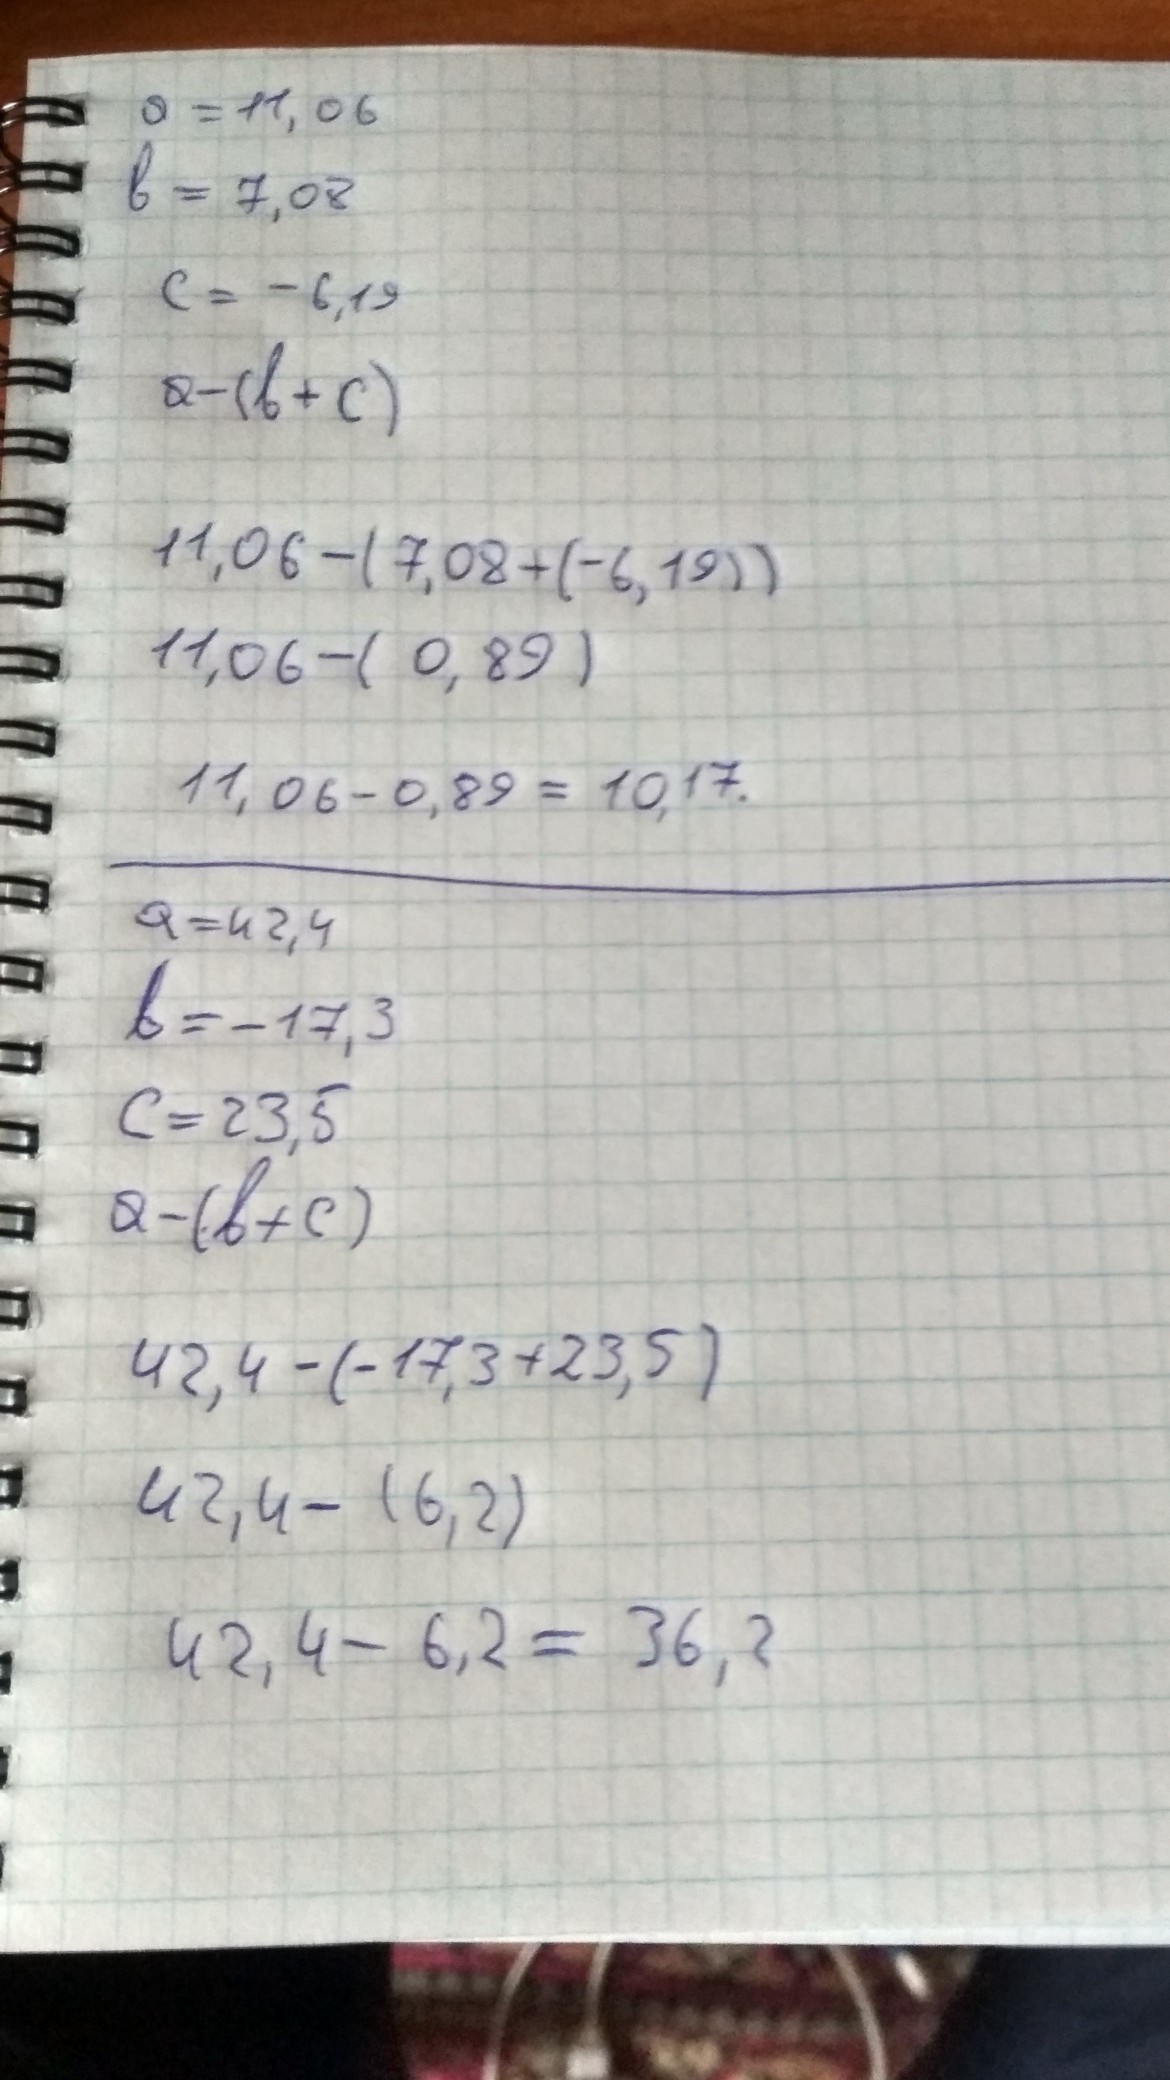 a = 11,06
b = 7,08
c = -6,19
a-(b+c)
11,06-(7,08+(-6,19))
11,06-(0,89)
11,06-0,89 = 10,17.
a=42,4
b=-17,3
c=23,5
a-(b+c)
42,4-(-17,3+23,5)
42,4-(6,2)
42,4-6,2= 36,2